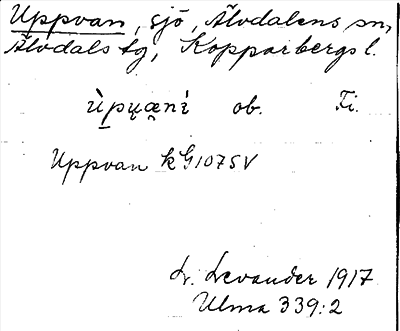 Uppvan, sjö, Älvdalens sn,
Älvdals tg, Kopparbergs l.
ùpu̯æní ob. Fi.
Uppvan k G 107 SV
L. Levander 1917
Ulma 339:2